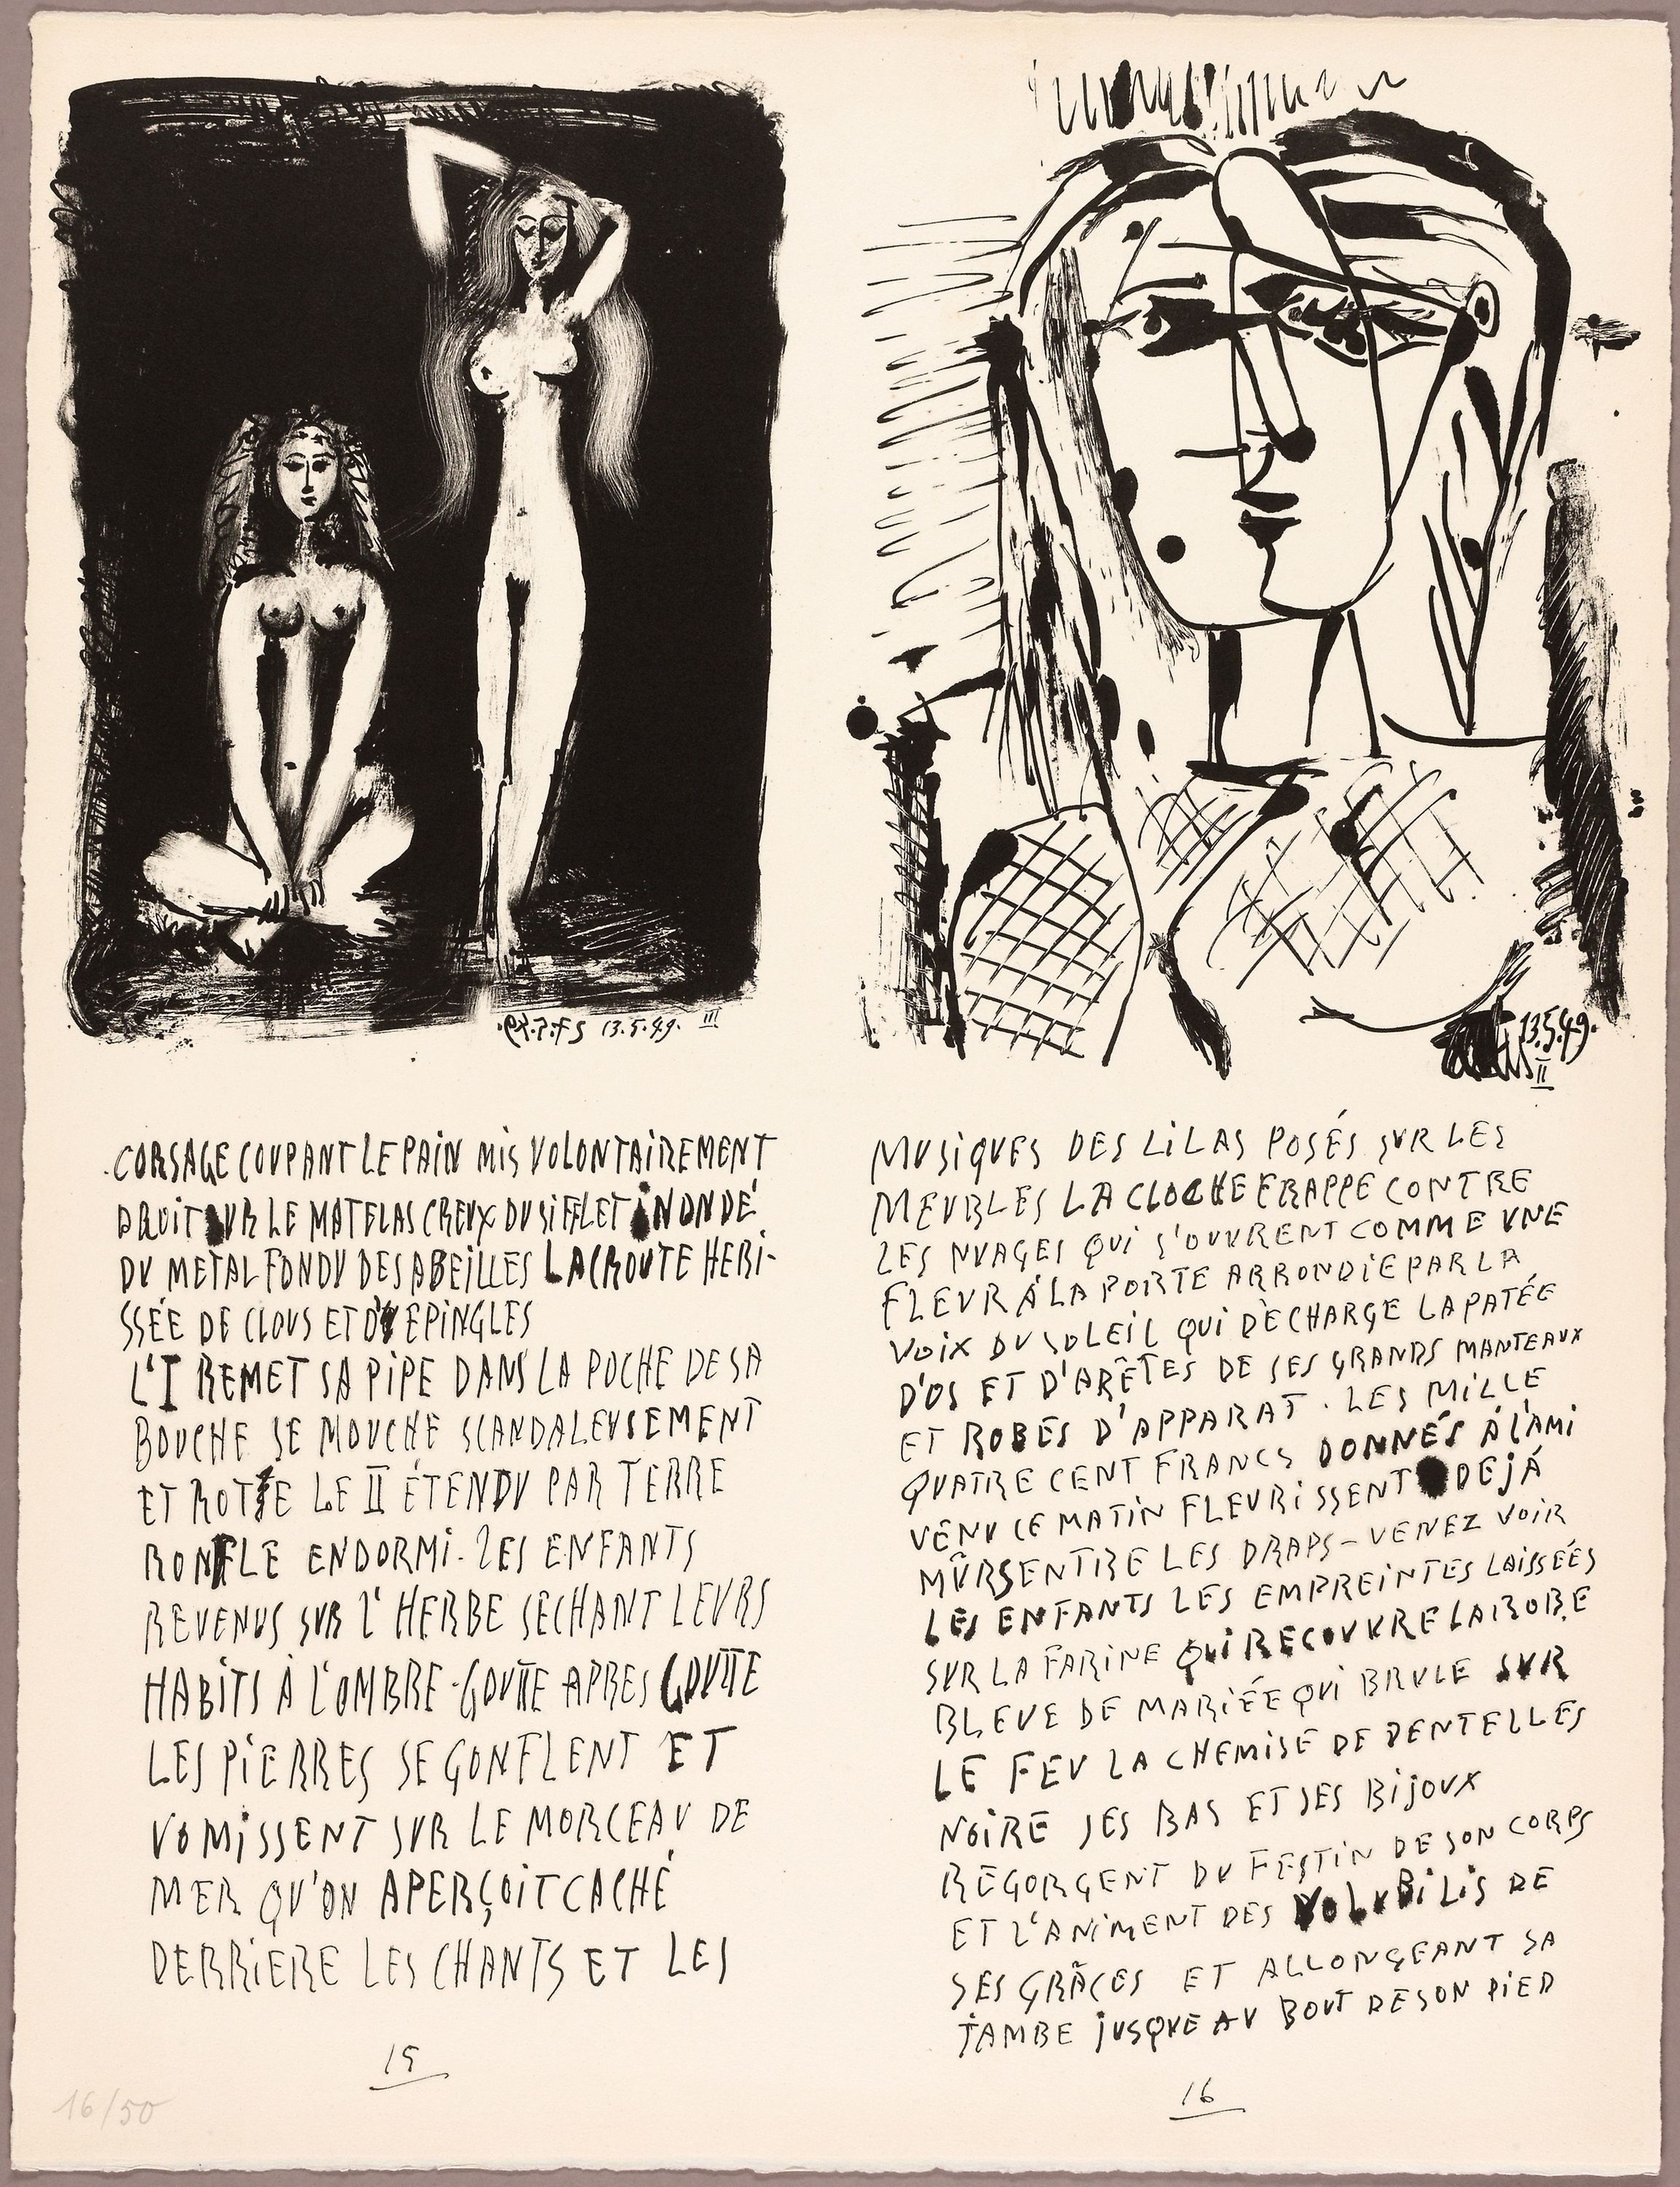 13.5.49. III
13.5.49.
II
CORSAGE COUPANT LE PAIN MIS VOLONTAIREMENT
DROIT SUR LE MATELAS CREUX DU SIFFLET INONDÉ
DU METAL FONDU DES ABEILLES LA CROUTE HERI-
SSÉE DE CLOUS ET D' EPINGLES
L'I REMET SA PIPE DANS LA POCHE DE SA
BOUCHE SE MOUCHE SCANDALEUSEMENT
ET ROTE LE II ÉTENDU PAR TERRE
RONFLE ENDORMI. LES ENFANTS
REVENUS SUR L'HERBE SECHANT LEURS
HABITS À L'OMBRE - GOUTTE APRES GOUTTE
LES PIERRES SE GONFLENT ET
VOMISSENT SUR LE MORCEAU DE
MER QU'ON APERÇOIT CACHÉ
DERRIERE LES CHANTS ET LES
15
MUSIQUES DES LILAS POSÉS SUR LES
MEUBLES LA CLOCHE FRAPPE CONTRE
LES NUAGES QUI S'OUVRENT COMME UNE
FLEUR À LA PORTE ARRONDIE PAR LA
VOIX DU SOLEIL QUI DÈCHARGE LA PATÉE
D'OS ET D'ARÊTES DE SES GRANDS MANTEAUX
ET ROBES D'APPARAT. LES MILLE
QUATRE CENT FRANCS DONNÉS À L'AMI
VENU CE MATIN FLEURISSENT DEJÀ
MÛRS ENTRE LES DRAPS - VENEZ VOIR
LES ENFANTS LES EMPREINTES LAISSÉES
SUR LA FARINE QUI RECOUVRE LA ROBE
BLEUE DE MARIÉE QUI BRULE SUR
LE FEU LA CHEMISE DE DENTELLES
NOIRE SES BAS ET SES BIJOUX
REGORGENT DU FESTIN DE SON CORPS
ET L'ANIMENT DES VOLUBILIS DE
SES GRÂCES ET ALLONGEANT SA
JAMBE JUSQUE AU BOUT DE SON PIED
16
16/50